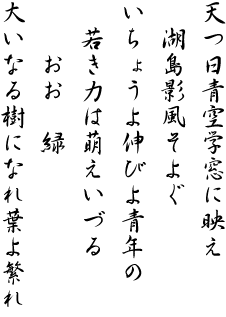 天つ日青空学窓に映え
湖島影風そよぐ
いちょうよ伸びよ青年の
若き力は萌えいづる
おお　緑
大いなる樹になれ葉よ繁れ